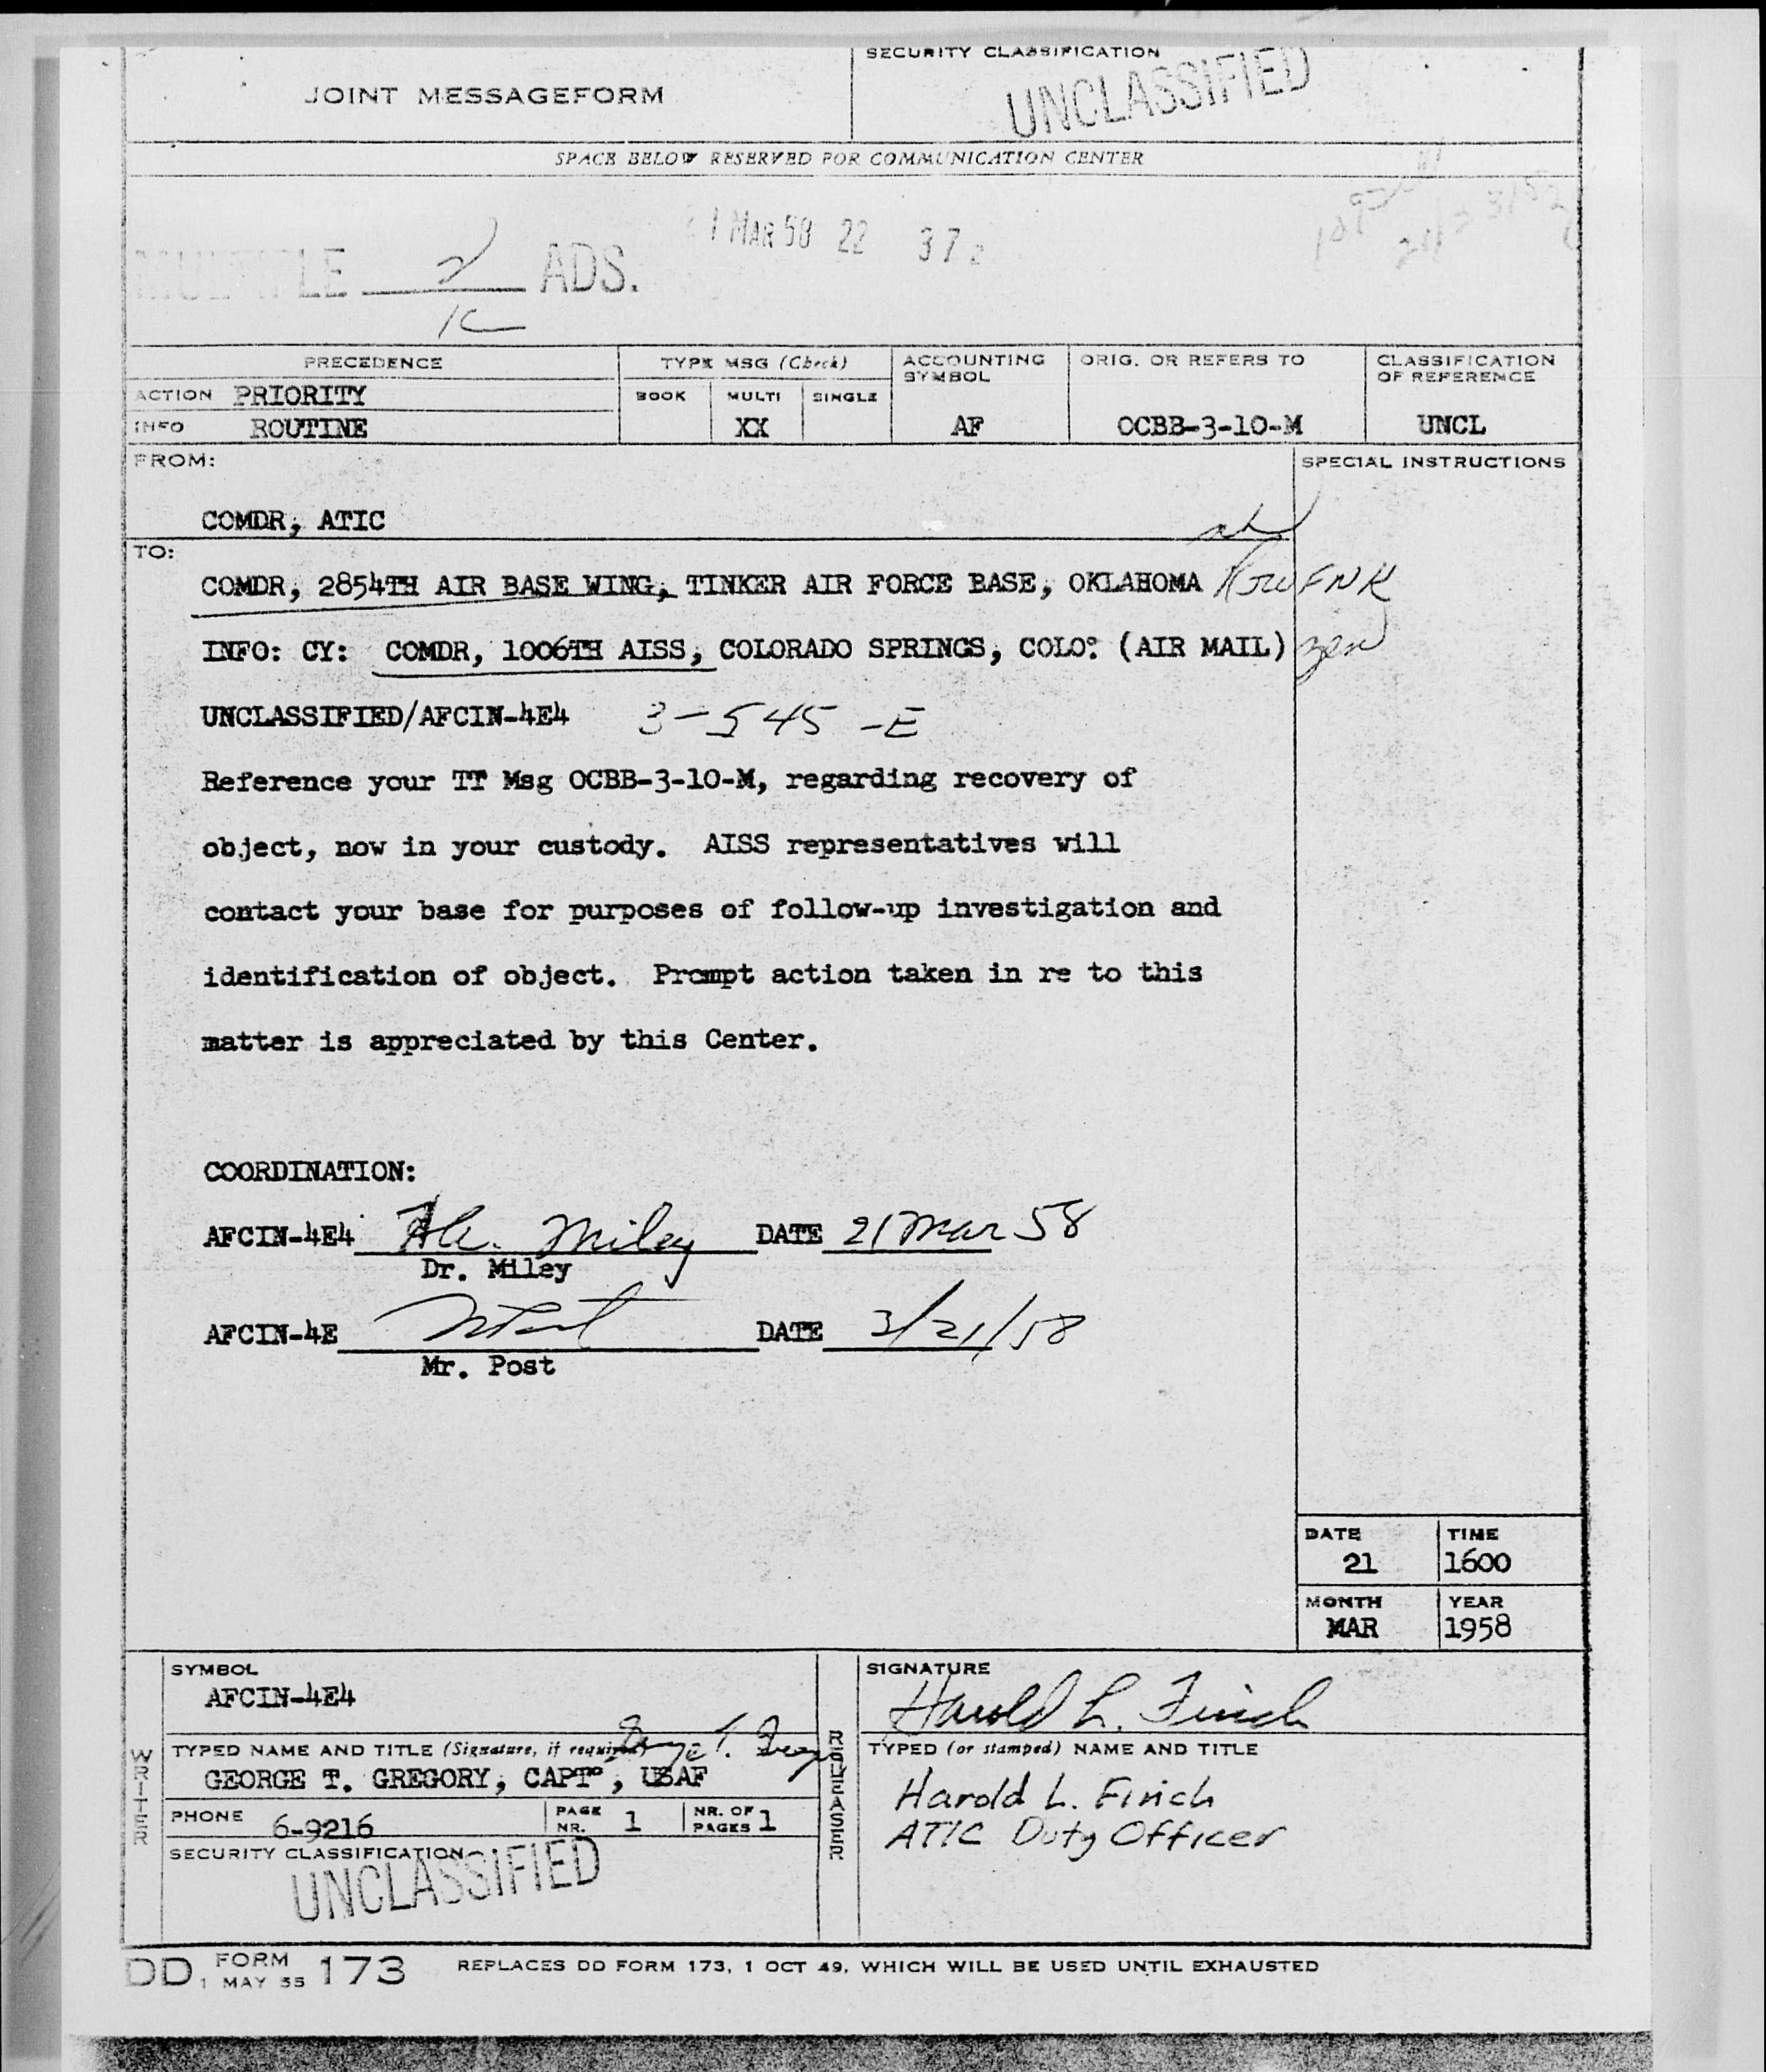 SECURITY CLASSIFICATION
JOINT MESSAGEFORM
UNCLASSIFIED
SPACE BELOW RESERVED FOR COMMUNICATION CENTER
1 MAR 58 22 37
2 ADS.
PRECEDENCE TYPE MSG (Check) ACCOUNTING SYMBOL ORIG. OR REFERS TO CLASSIFICATION OF REFERENCE
ACTION PRIORITY BOOK MULTI SINGLE
INFO ROUTINE XX AF OCBB-3-10-M UNCL
FROM: SPECIAL INSTRUCTIONS
COMDR, ATIC
TO:
COMDR, 2854TH AIR BASE WING, TINKER AIR FORCE BASE, OKLAHOMA
INFO: CY: COMDR, 1006TH AISS, COLORADO SPRINGS, COLO. (AIR MAIL)
UNCLASSIFIED/AFCIN-4E4 3-545-E
Reference your TT Msg OCBB-3-10-M, regarding recovery of
object, now in your custody. AISS representatives will
contact your base for purposes of follow-up investigation and
identification of object. Prompt action taken in re to this
matter is appreciated by this Center.
COORDINATION:
AFCIN-4E4 Miley DATE 21 Mar 58
Dr. Miley
AFCIN-4E DATE 3/21/58
Mr. Post
DATE TIME
21 1600
MONTH YEAR
MAR 1958
WRITER
SYMBOL
AFCIN-4E4
TYPED NAME AND TITLE (Signature, if required)
GEORGE T. GREGORY, CAPT., USAF
PHONE 6-9216 PAGE NR. 1 NR. OF PAGES 1
SECURITY CLASSIFICATION
UNCLASSIFIED
RELEASER
SIGNATURE
Harold L. Finch
TYPED (or stamped) NAME AND TITLE
Harold L. Finch
ATIC Duty Officer
DD FORM 1 MAY 55 173 REPLACES DD FORM 173, 1 OCT 49, WHICH WILL BE USED UNTIL EXHAUSTED